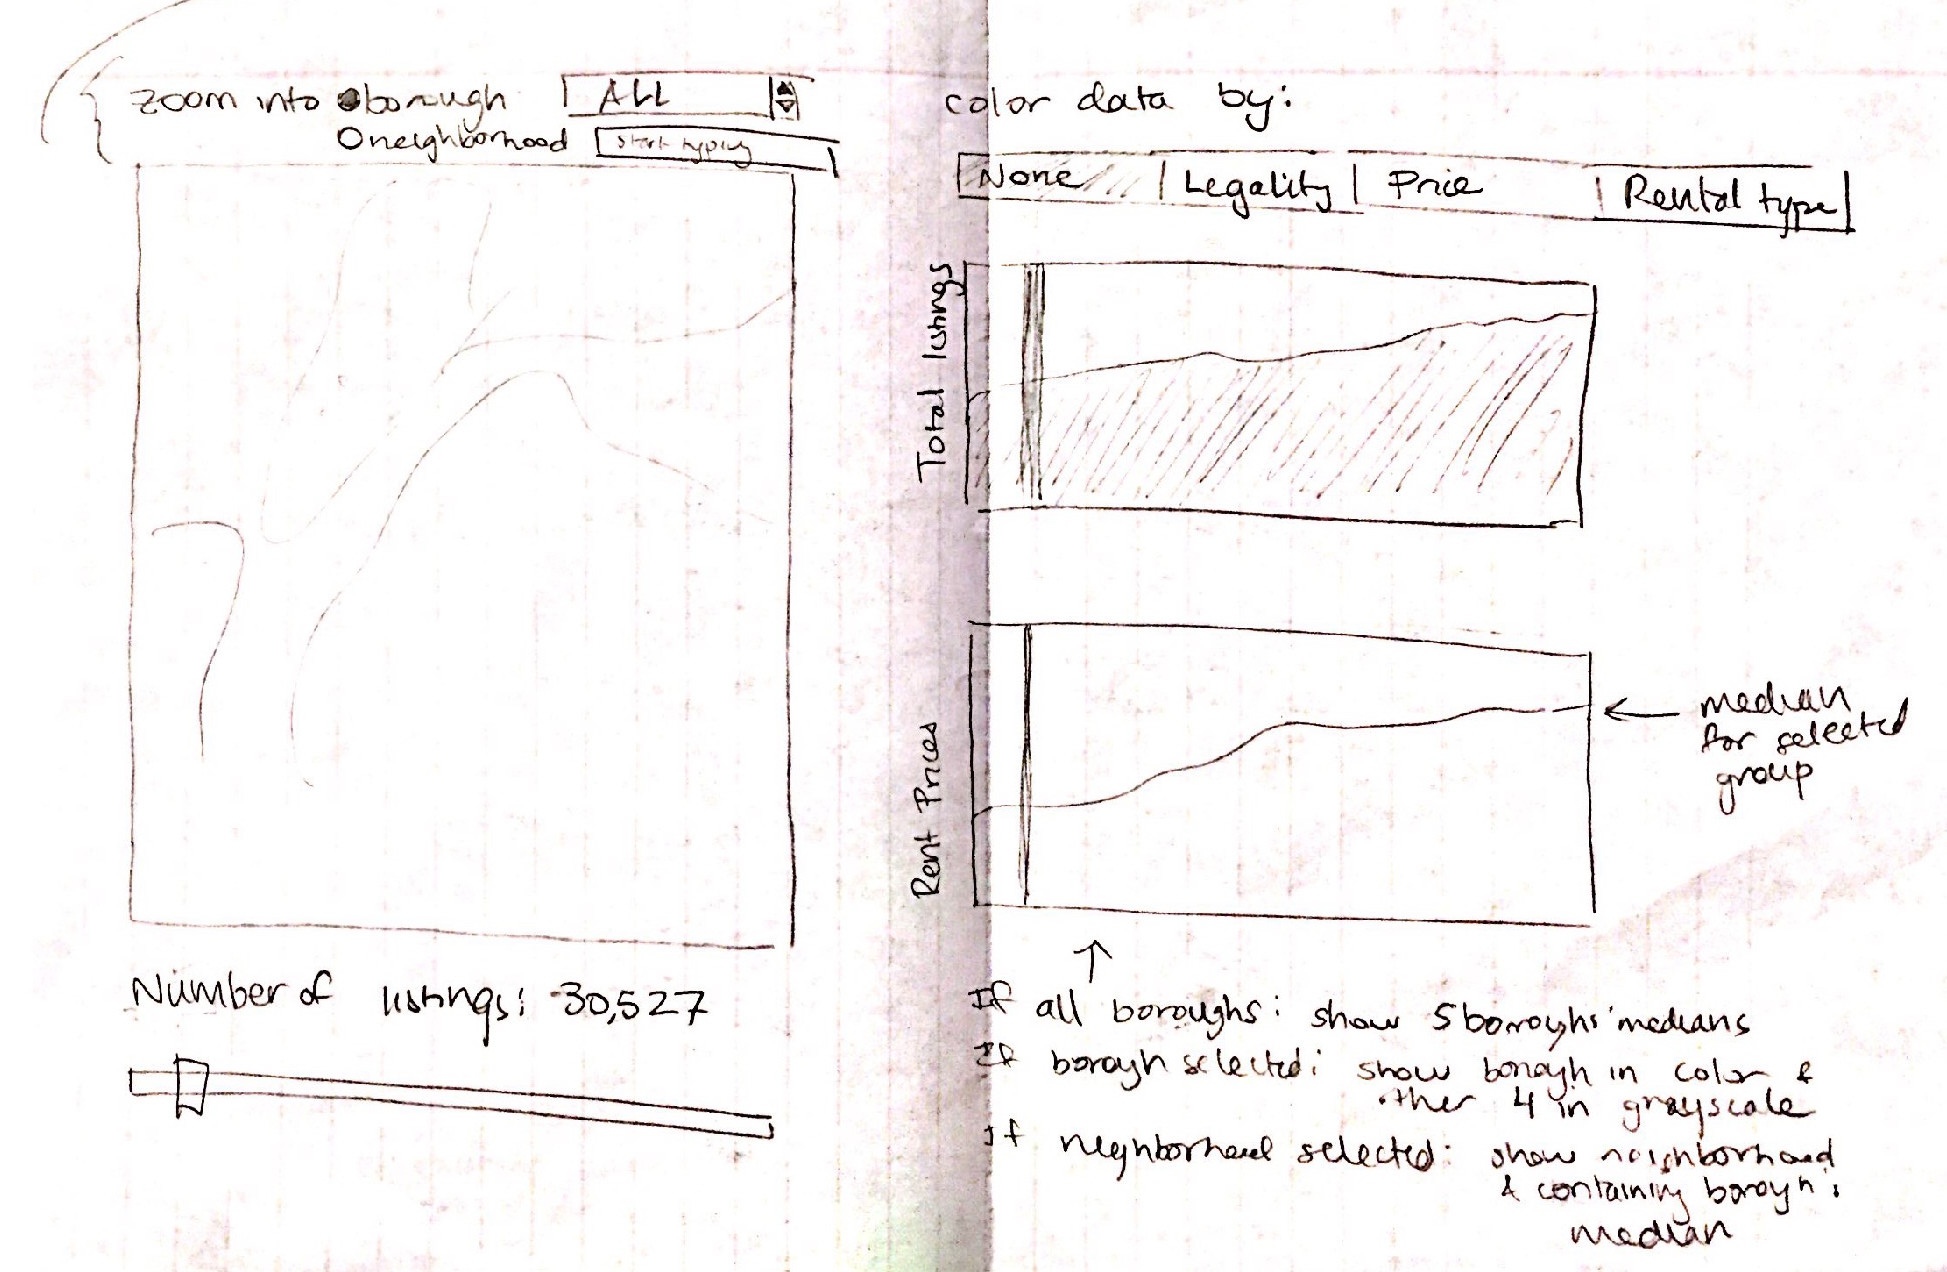 zoom into borough ALL
Oneighborhood start typing
Number of listings: 30,527
color data by:
None Legality Price Rental type
Total listings
Rent Prices
median
for selected
group
If all boroughs: show 5 boroughs' medians
If borough selected: show borough in color &
other 4 in grayscale
If neighborhood selected: show neighborhood
& containing borough's
median